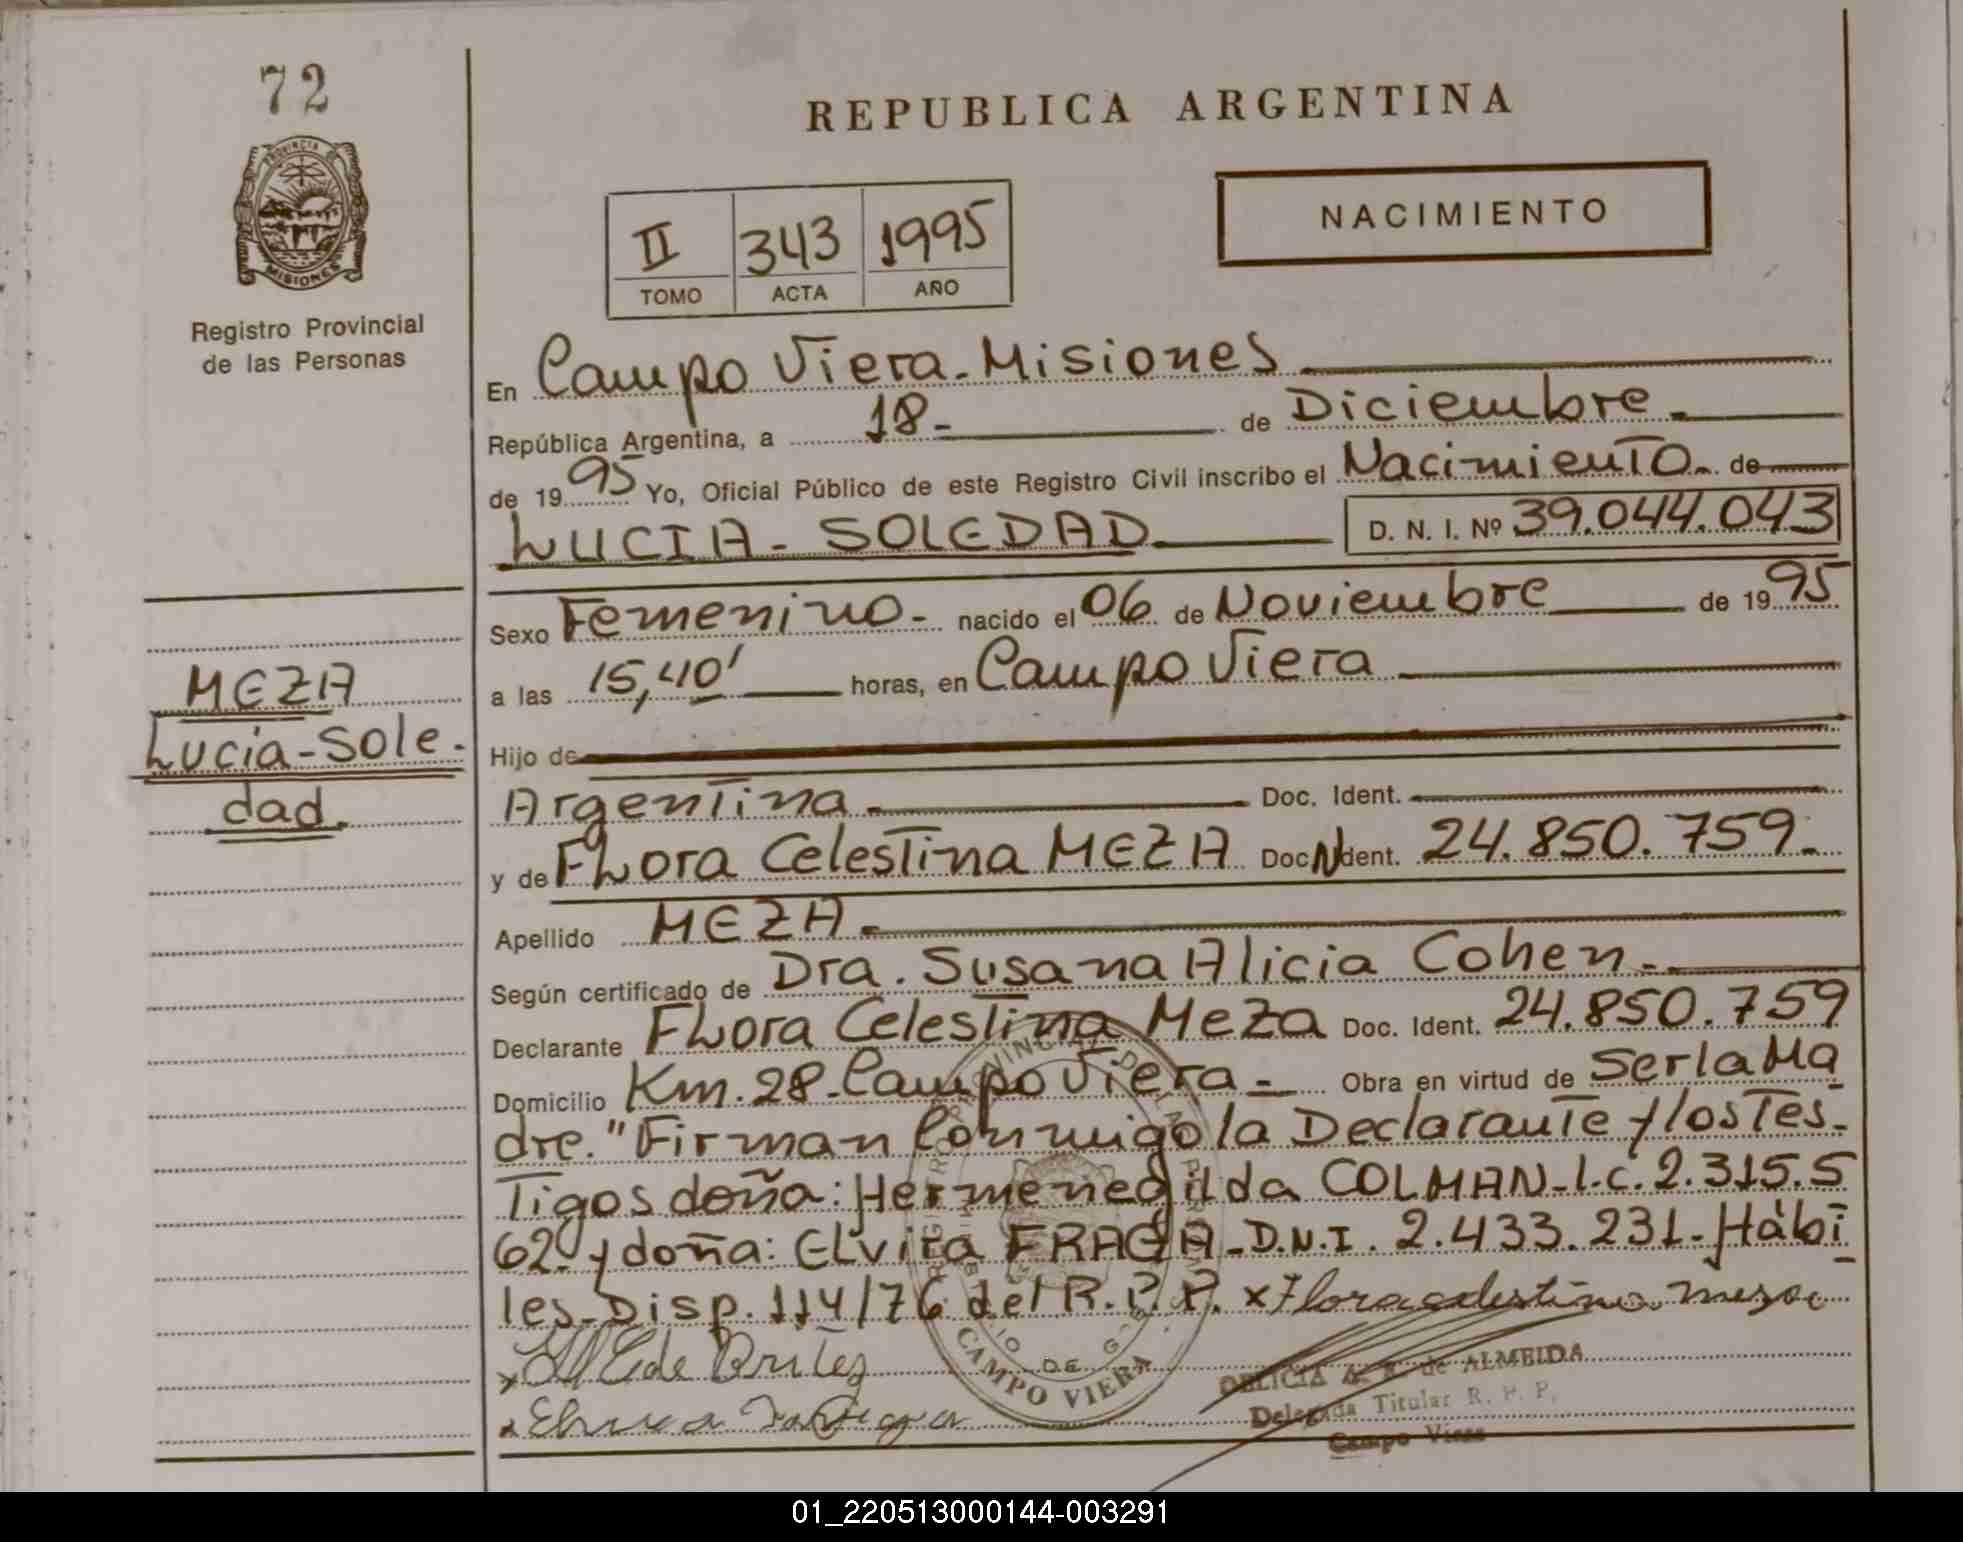 72
PROVINCIA DE
MISIONES
Registro Provincial
de las Personas
MEZA
Lucia-Sole-
dad.
REPUBLICA ARGENTINA
NACIMIENTO
II 343 1995
TOMO ACTA AÑO
En Campo Viera-Misiones
República Argentina, a 18- de Diciembre-
de 1995 Yo, Oficial Público de este Registro Civil inscribo el Nacimiento- de
LUCIA-SOLEDAD D. N. I. Nº 39.044.043
Sexo Femenino- nacido el 06 de Noviembre de 1995
a las 15,40' horas, en Campo Viera
Hijo de
Argentina Doc. Ident.
y de Flora Celestina MEZA Doc. Ident. 24.850.759.-
Apellido MEZA.-
Según certificado de Dra. Susana Alicia Cohen.-
Declarante Flora Celestina Meza Doc. Ident. 24.850.759
Domicilio Km.28-Campo Viera- Obra en virtud de Ser la Ma
dre." Firman Conmigo la Declarante y los Tes-
tigos doña: Hermenegilda COLMAN-L.C.2.315.5
62- y doña: Elvira FRAGA-D.N.I. 2.433.231-Hábi
les-Disp. 114/76 del R.P.P. x Flora celestina meza
x de Britez
x
REGISTRO PROVINCIAL DE LAS PERSONAS
CAMPO VIERA
DELICIA de ALMEIDA
Delegada Titular R. P. P.
Campo Viera
01_220513000144-003291